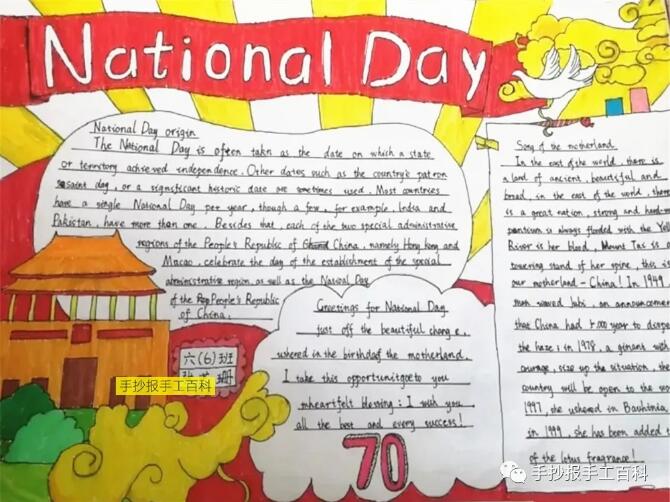 National Day
National Day origin
The National Day is often takn as the date on which a state
or territory achieved independence. Other dates such as the country's patron
saint day, or a significant historic date are sometimes used. Most countries
have a single National Day per year, though a few, for example, India and
Pakistan, have more than one. Besides that, each of the two special administrative
regions of the People's Republic of China, namely Hong kong and
Macao, celebrate the day of the establishment of the special
administrative region, as well as the National Day
of the People's Republic
of China.
Greetings for National Day
just off the beautiful chang e,
ushered in the birthday of the motherland.
I take this opportunity to you
heartfelt blessing: I wish you
all the best and every success!
70
六(6)班
手抄报手工百科
Song of the motherland
In the east of the world, there is
a land of ancient, beautiful and
broad, in the east of the world, there
is a great nation, strong and hard
is always flooded with the Yell
River is her blood, Mount Tai is
towering stand of her spine, this is
our motherland - China! In 1949
man waved, an announcement
that China had
the haze; in 1978, a giant with
courage, size up the situation, the
country will be open to the
1997, she ushered in Bauhinia
in 1999, she has been added
of the lotus fragrance!
手抄报手工百科